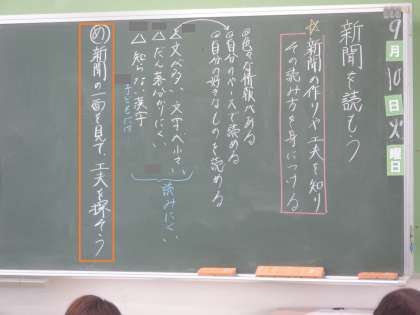 9月10日火曜日
新聞を読もう
☆新聞の作りや工夫を知り
その読み方を身につける
色々な情報がある
自分のペースで読める
自分の好きなものを読める
文字が小さい
△だん落が分かりにくい
△知らない漢字
読みにくい
子ども
め 新聞の一面を見て、工夫を探そう